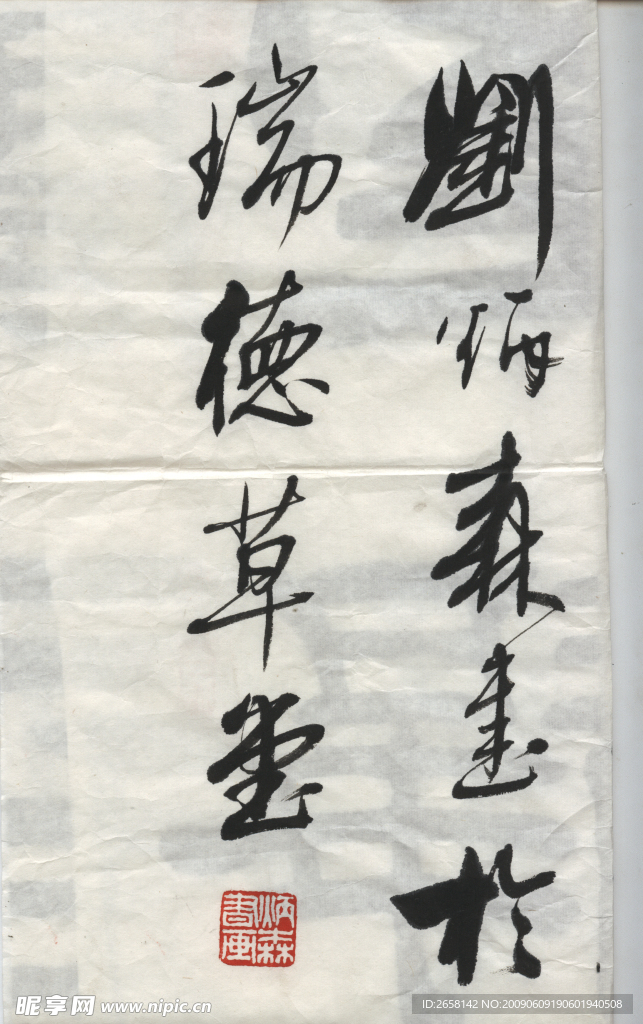 劉炳森書於
瑞德草堂
炳森
書画
昵享网 www.nipic.cn
ID:2658142 NO:20090609190601940508